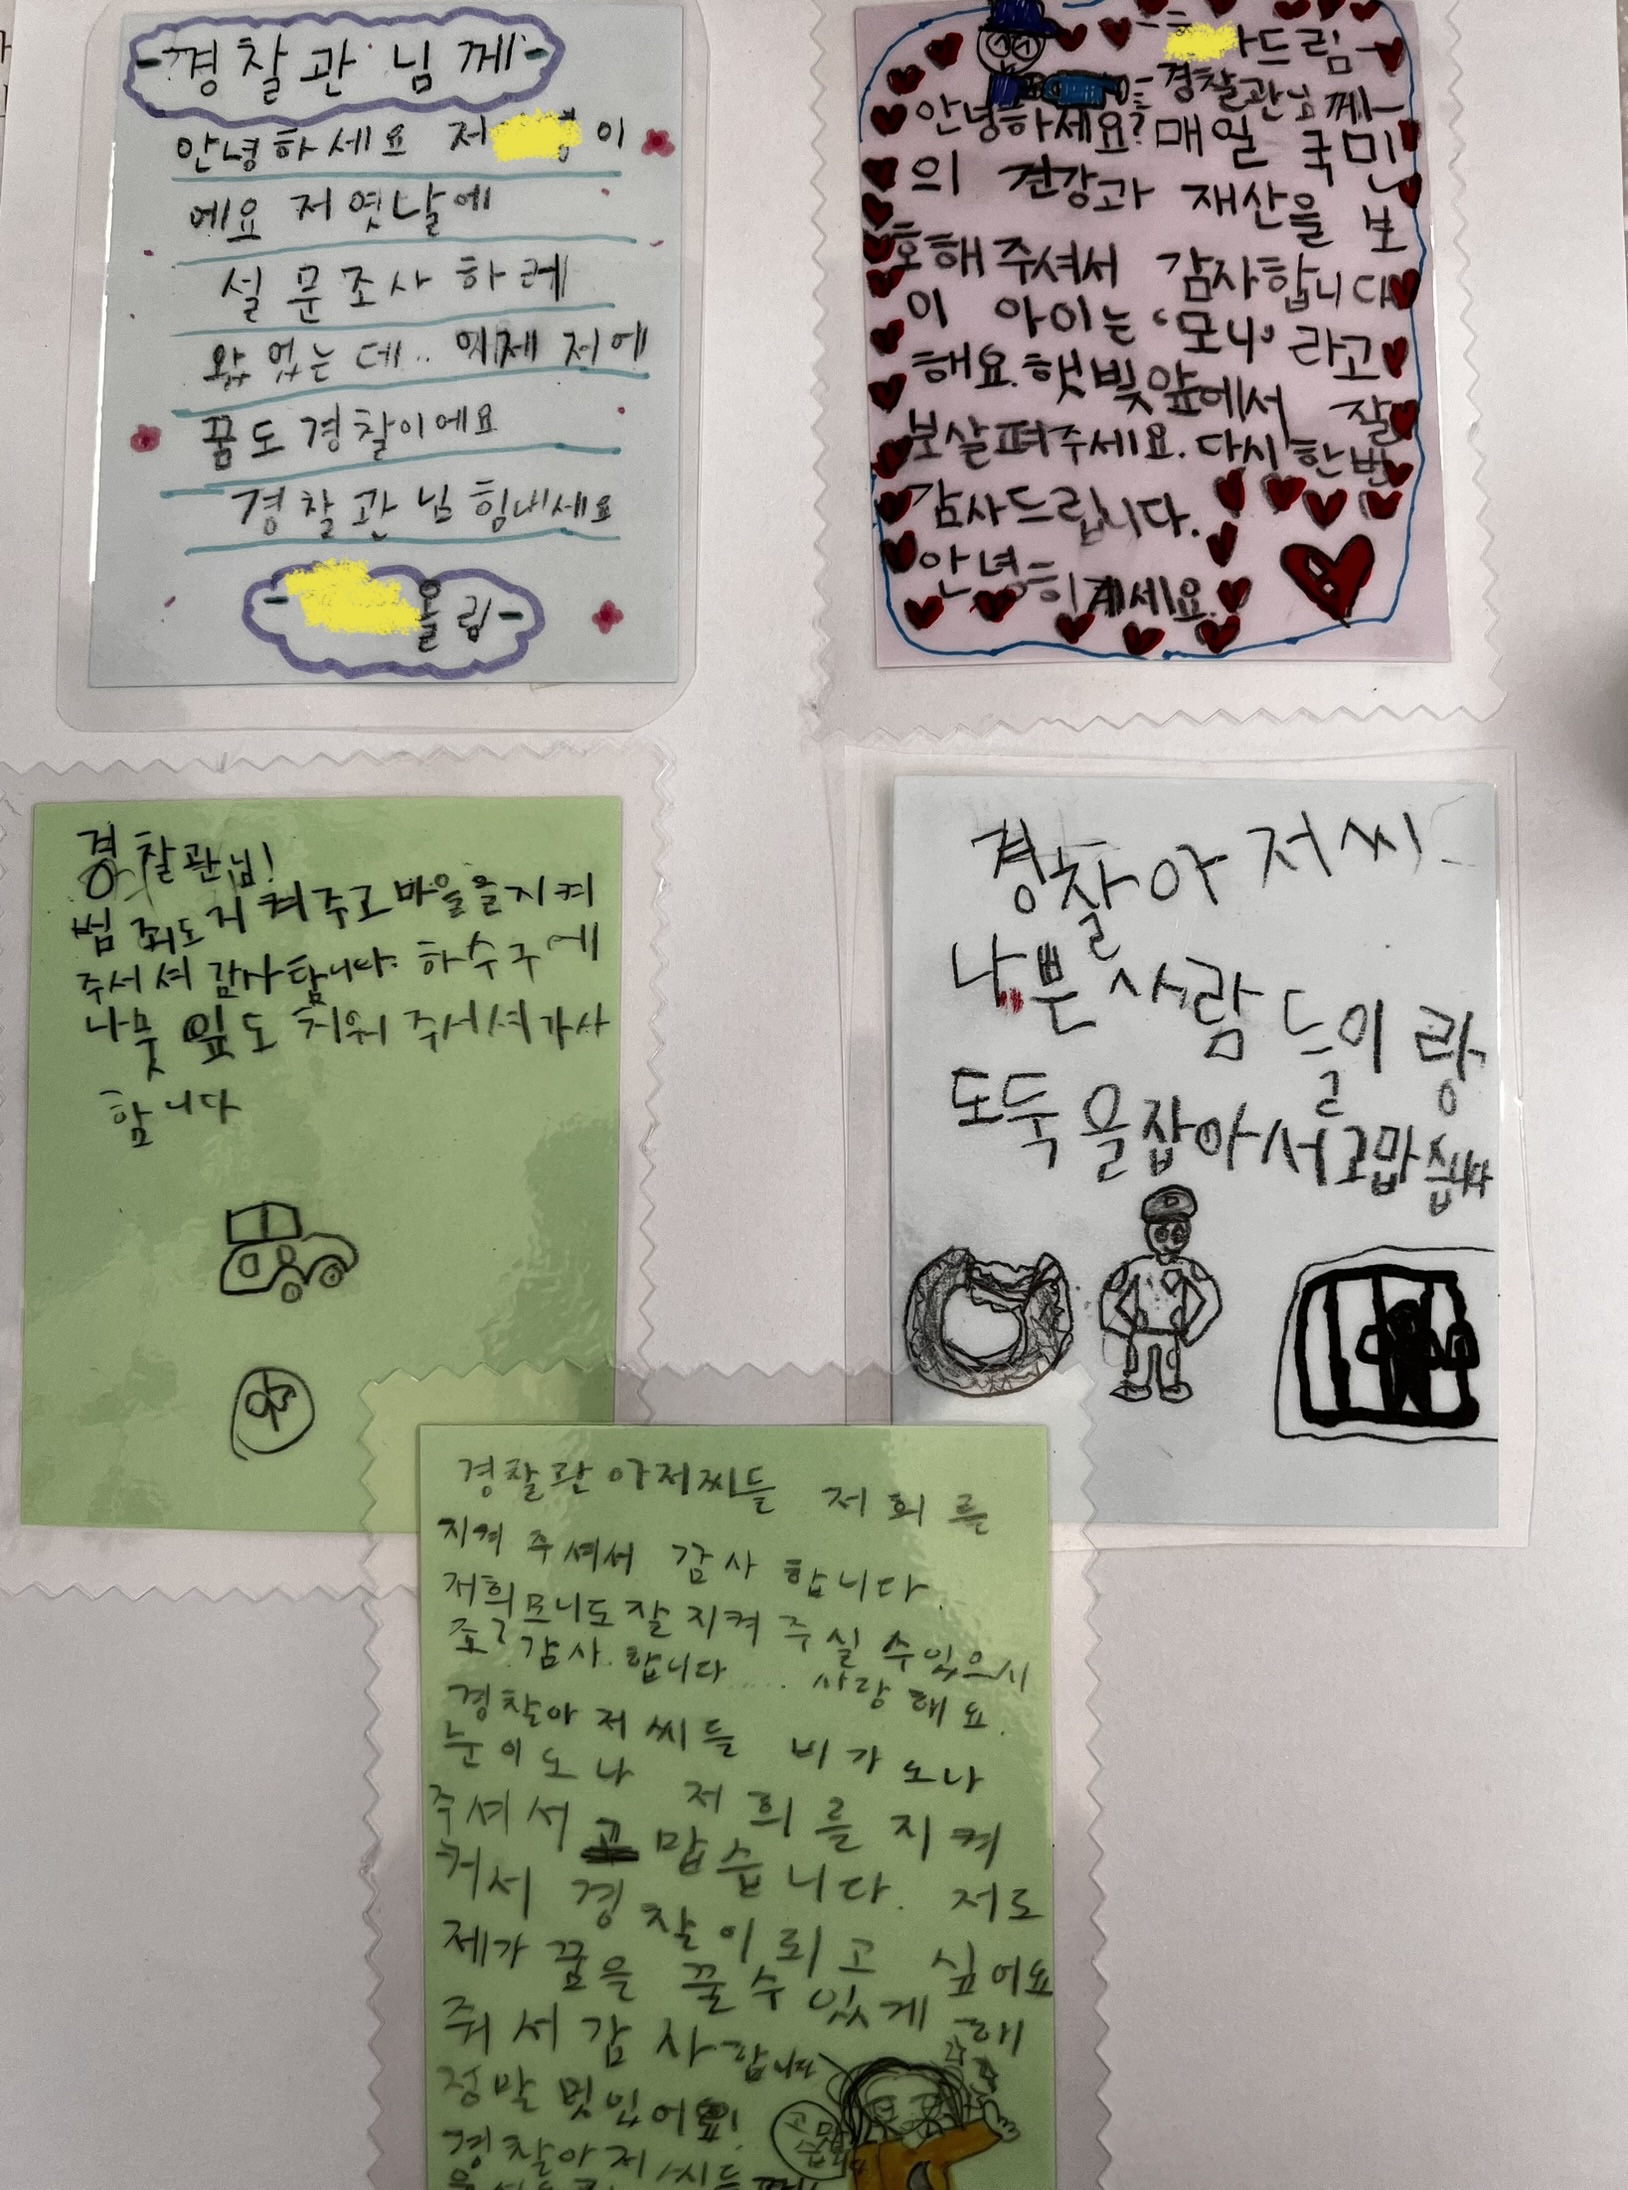 -경찰관님께-
안녕하세요 저 이
에요 저 옛날에
설문조사 하레
왔 었는데.. 제 저에
꿈도 경찰이에요
경찰관님 힘내세요
올림-
드림-
경찰관님께-
안녕하세요? 매일 국민
의 건강과 재산을 보
호해주셔서 감사합니다
이 아이는 '모니' 라고
해요. 햇빛앞에서 잘
보살펴주세요. 다시한번
감사드립니다.
안녕히계세요.
경찰관님!
범죄도 지켜주고 마을을지켜
주서셔 감사합니다. 하수구에
나뭇잎도 치워 주서셔가사
합니다
경찰아저씨
나쁜 사람들이랑
도둑을잡아서고맙습니다
경찰관아저씨들 저희를
지켜 주셔서 감사 합니다.
저희모니도잘 지켜 주실 수있으시
죠? 감사.합니다..... 사랑해요.
경찰아저씨들 비가 오나
눈이오나 저희를 지켜
주셔서 고맙습니다. 저도
커서 경찰이되고 싶어요
제가 꿈을 꿀수있게 해
줘서감사합니다
정말 멋있어요!
고맙습니다
경찰아저씨들